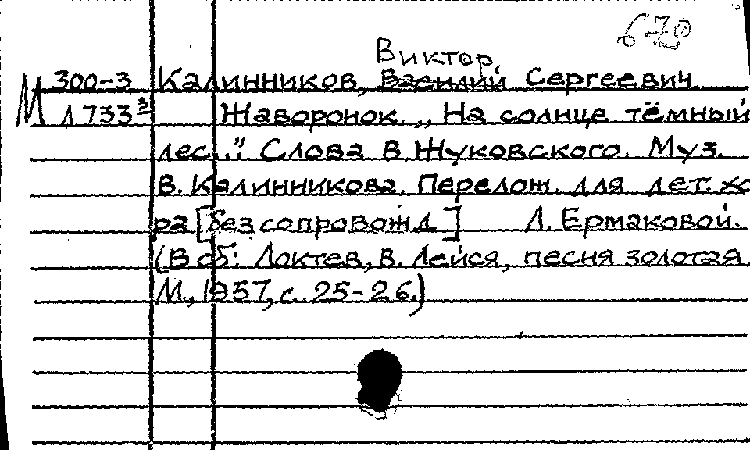 670
Виктор
300-3 Калинников, Василий Сергеевич
М Л 733³ Жаворонок. „На солнце тёмный
лес..." Слова В. Жуковского. Муз.
В. Калинникова. Перелож. для дет. хо-
ра [без сопровожд.] Л. Ермаковой.
(В сб: Локтев, В. Лейся, песня золотая
М., 1957, с. 25-26.)